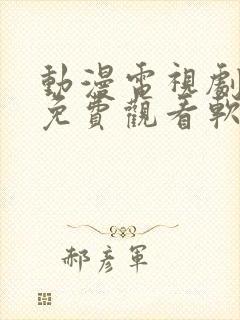 動漫電視劇
免費觀看軟
郝彥軍